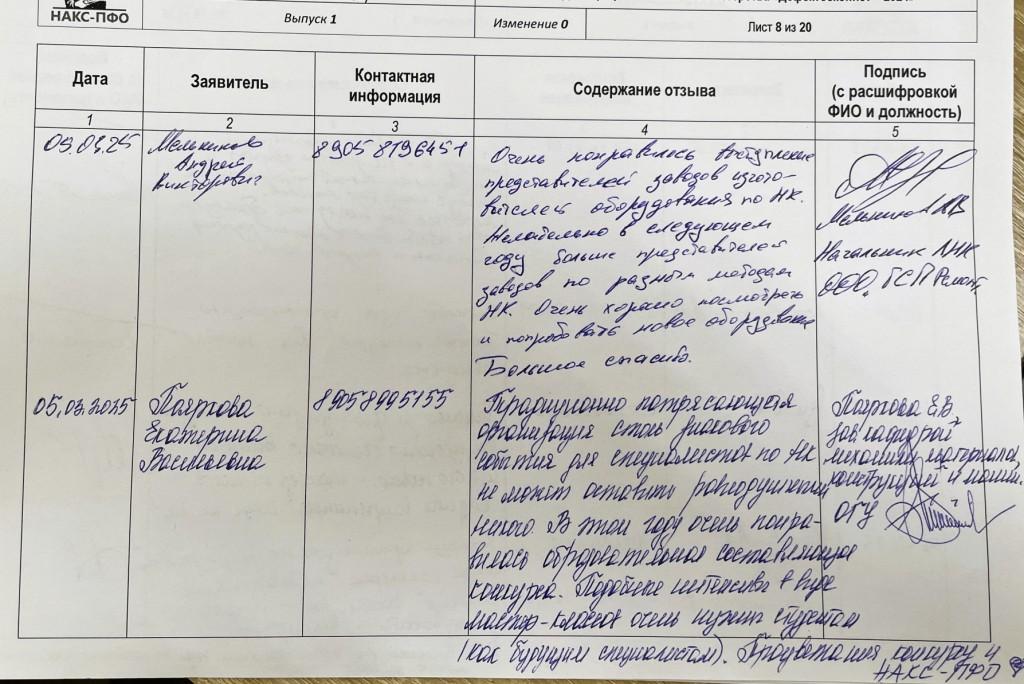 НАКС-ПФО
Выпуск 1
Изменение 0
Лист 8 из 20
Дата
Заявитель
Контактная
информация
Содержание отзыва
Подпись
(с расшифровкой
ФИО и должность)
1
2
3
4
5
Мельников
Андрей
Викторович
Очень понравилось выступление
представителей заводов изгото-
вителей оборудования по НК.
Желательно в следующем
году больше представителей
заводов по разным методам
НК. Очень хорошо посмотреть
и попробовать новое оборудование
Большое спасибо.
Мельников АВ
Начальник ЛНК
ООО "ГСП Ремонт"
05.03.2025
Пояркова
Екатерина
Васильевна
89058995155
Традиционно потрясающая
организация столь знакового
события для специалистов по НК
не может оставить равнодушным
никого. В этом году очень понра-
вилась образовательная составляющая
конкурса. Подобные интенсивы в виде
мастер-классов очень нужны студентам
(как будущим специалистам). Процветания конкурсу и
НАКС-ПФО
Пояркова Е.В.
зав. кафедрой
механики материалов,
конструкций и машин.
ОГУ